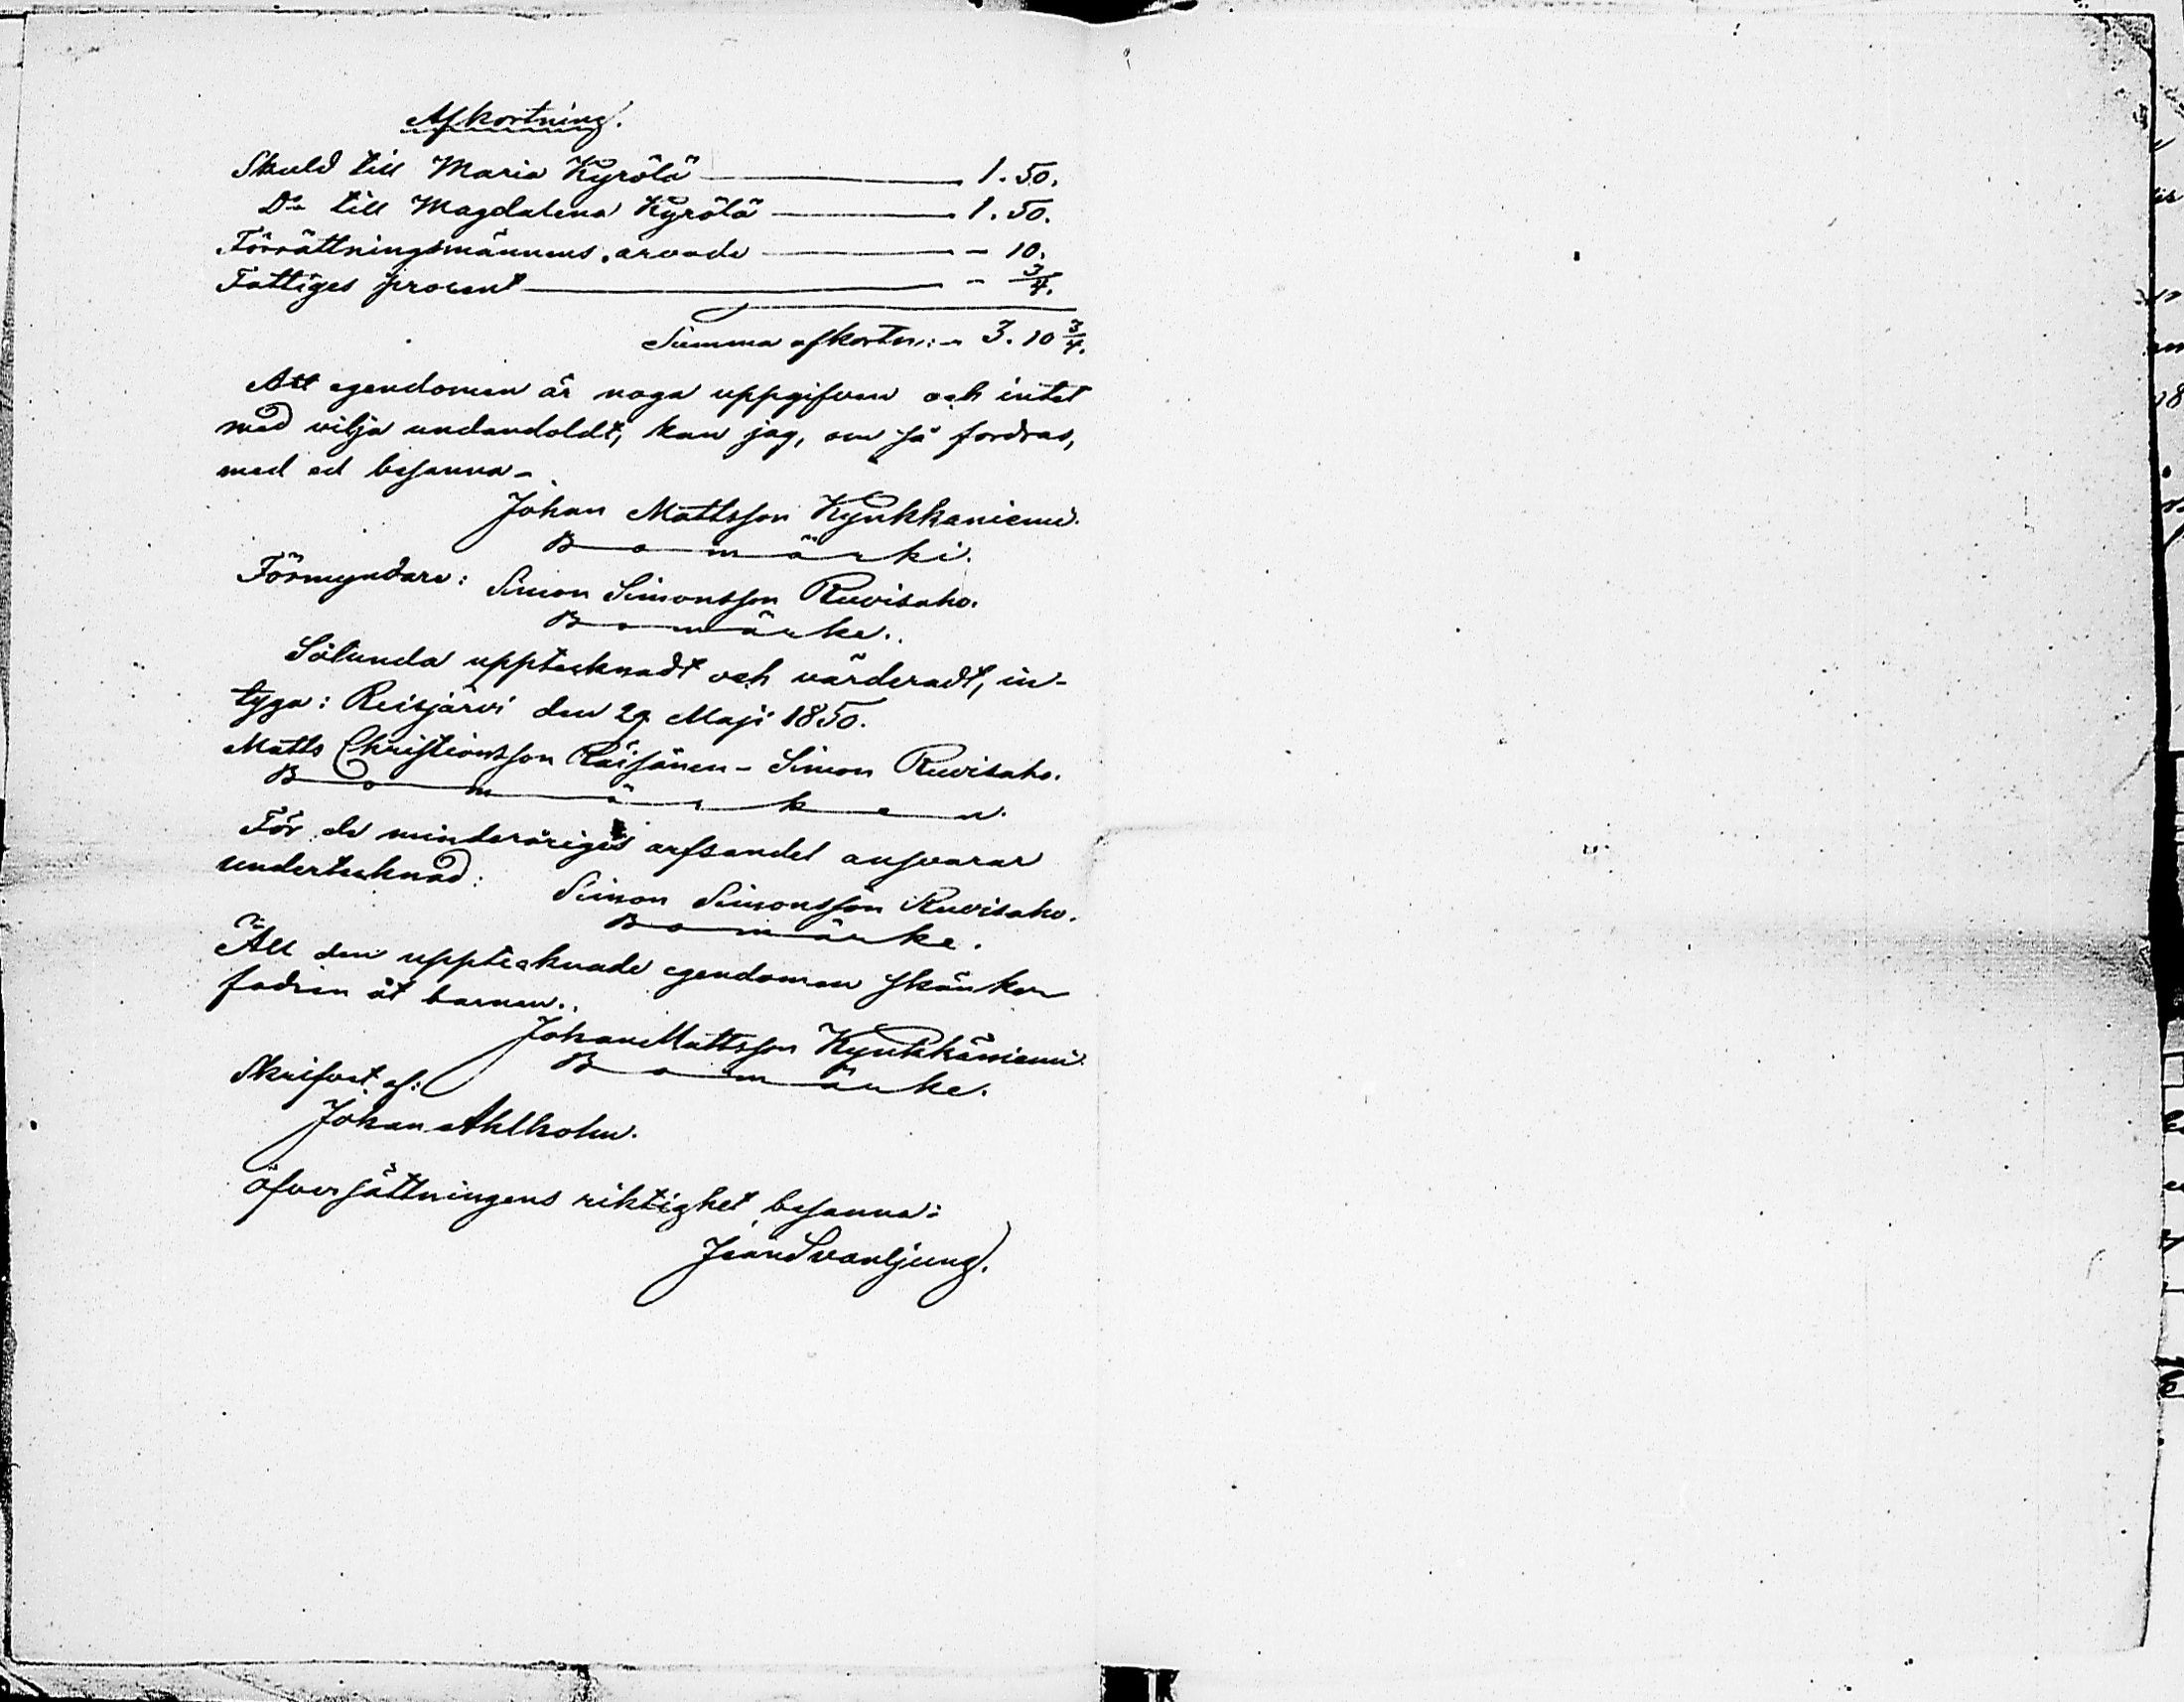 Afkortning.
Skuld till Maria Kyrölä — 1. 50.
Do till Magdalena Kyrölä — 1. 50.
Förrättningsmännens arvode — - 10.
Fattiges procent — - 3/4.
Summa afkortn:n 3. 10 3/4.
Att egendomen är noga uppgifven och intet
med vilja undandoldt, kan jag, om så fordras,
med ed besanna.
Johan Mattsson Kynkkaniemi.
Bomärki.
Förmyndare: Simon Simonsson Ruvisaho.
Bomärke.
Sålunda upptecknadt och värderadt, in-
tyga: Reisjärvi den 29 Maji 1850.
Matts Christiansson Räisänen - Simon Ruvisaho.
Bomärken.
För de minderåriges arfsandel ansvarar
undertecknad:
Simon Simonsson Ruvisaho.
Bomärke.
All den upptecknade egendomen skänker
fadren åt barnen.
Johan Mattsson Kynkkäniemi
Bomärke.
Skrifvet af:
Johan Ahlholm.
Öfversättningens riktighet besanna:
Jean Svanljung.